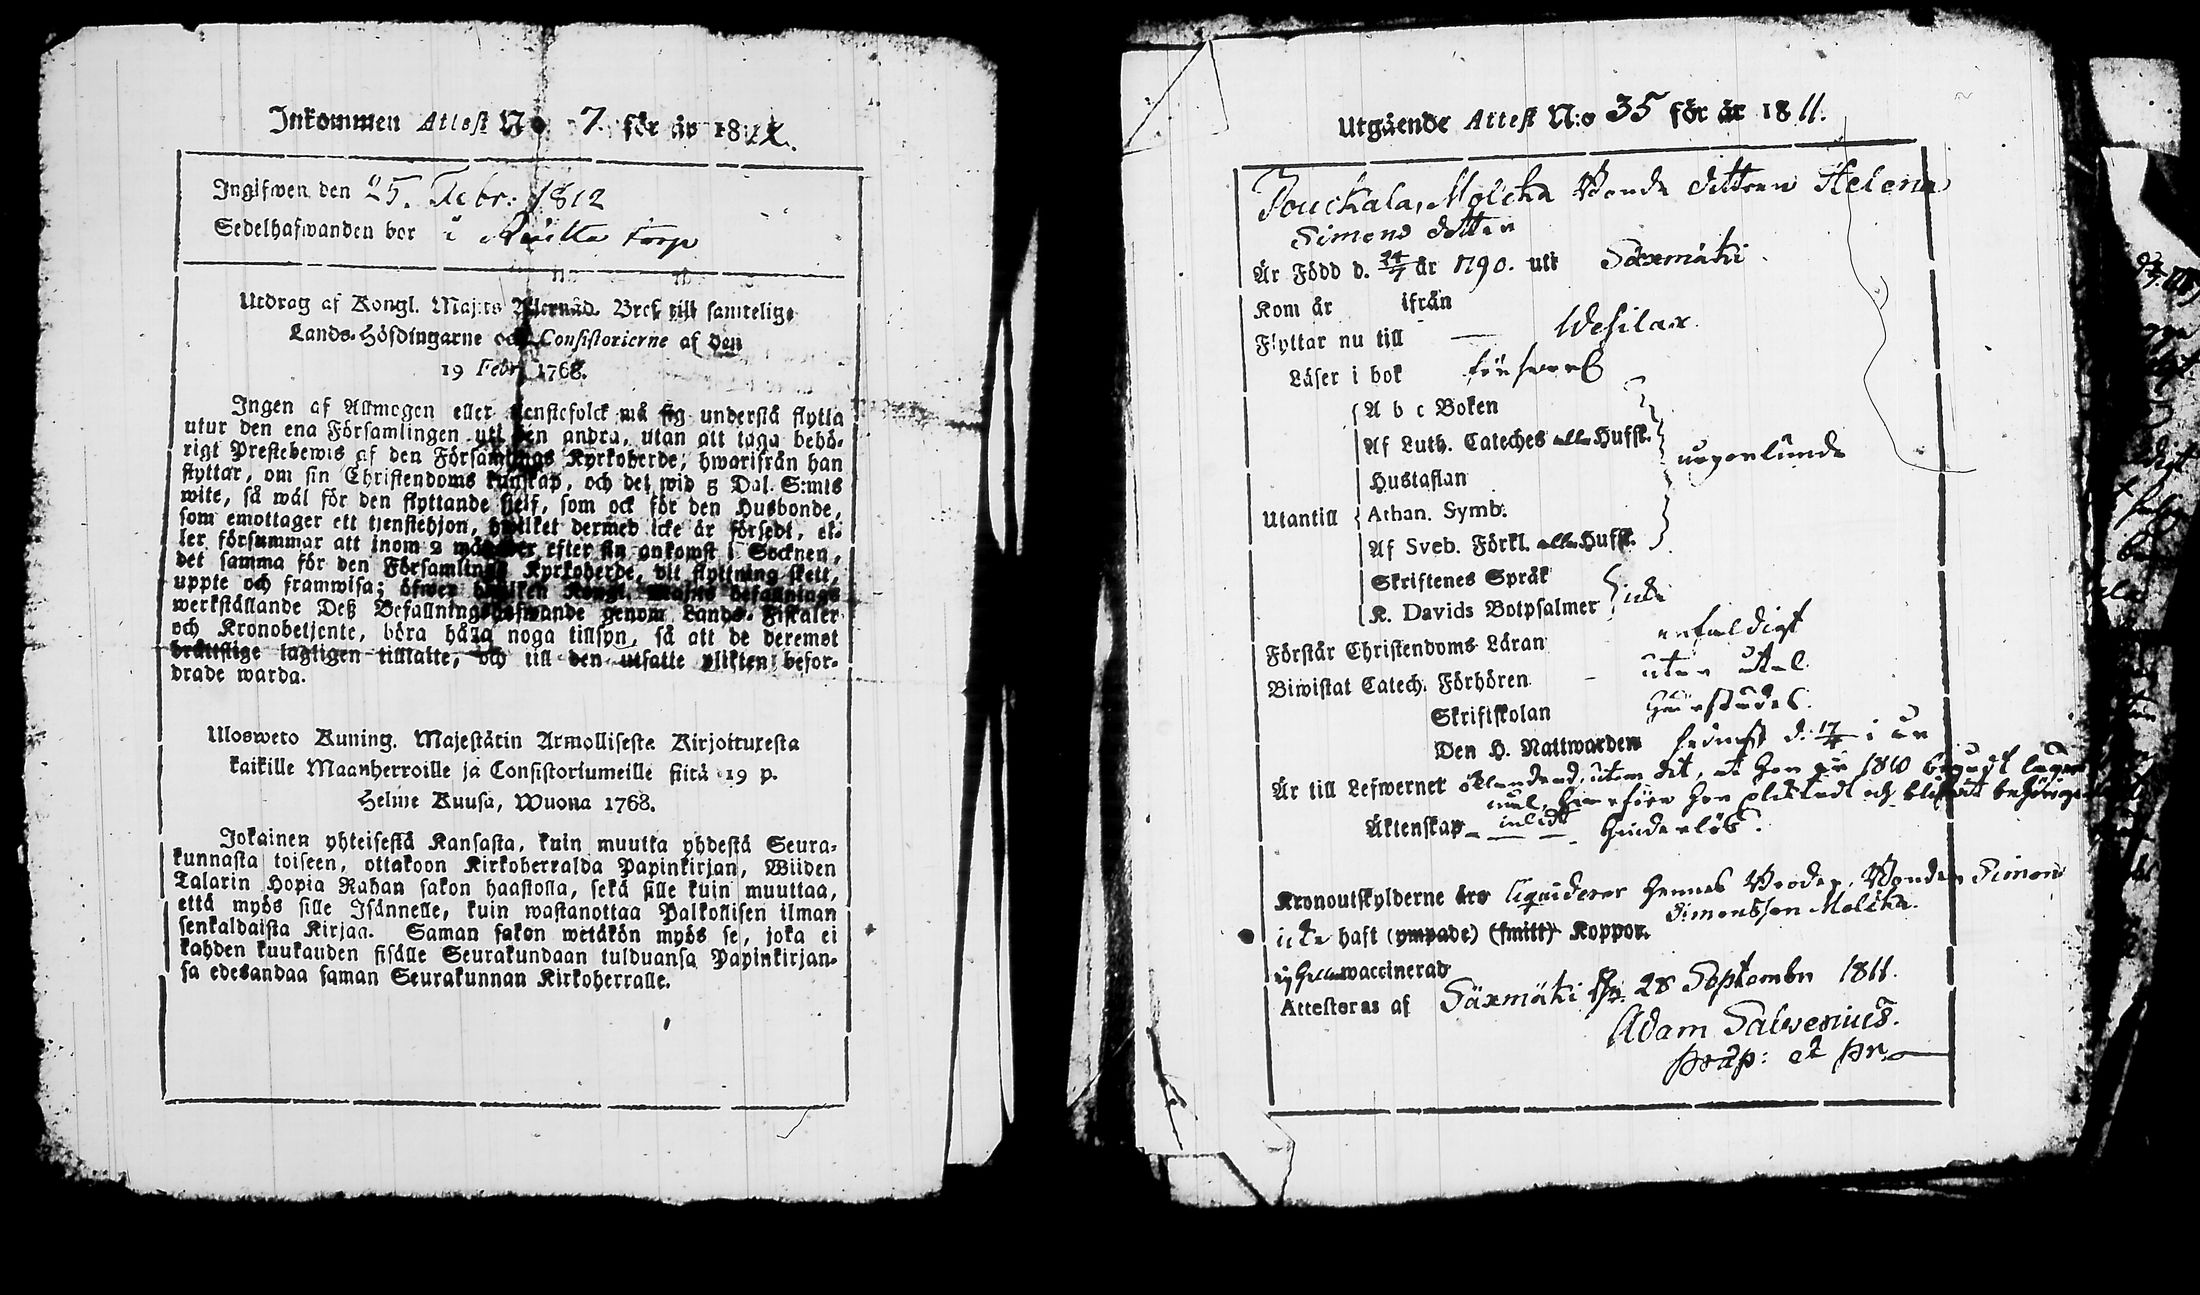 Inkommen Attest No. 7. för år 1812.
Ingifwen den 25. Febr: 1812
Sedelhafwanden bor i torp
Utdrag af Kongl. Maj:ts Allernåd. Bref till samtelige
Lands-Höfdingarne och Consistorierne af den
19 Febr. 1768.
Ingen af Allmogen eller tjenstefolck må sig understå flytta
utur den ena Församlingen uti den andra, utan att taga behö-
rigt Prestebewis af den Församlings Kyrkoherde, hwarifrån han
flyttar, om sin Christendoms kunskap, och det wid 5 Dal. S:mts
wite, så wäl för den flyttande sjelf, som ock för den Husbonde,
som emottager ett tjenstehjon, hwilket dermed icke är försedt, el-
ler försummar att inom 2 månader efter sin ankomst i Socknen,
det samma för den Församlings Kyrkoherde, dit flyttning skett,
uppte och framwisa; öfwer hwilken Kongl. Maj:ts befallnings
werkställande Deß Befallningshafwande genom Lands-Fiskaler
och Kronobetjente, böra hålla noga tillsyn, så att de deremot
bråttslige lagligen tilltalte, och till den utsatte plikten befor-
drade warda.
Uloswето Kuning. Majestätin Armollisesta Kirjoituxesta
kaikille Maanherroille ja Consistoriumeille siitä 19 p.
Helme Kuusa, Wuona 1768.
Jokainen yhteisestä Kansasta, kuin muutta yhdestä Seura-
kunnasta toiseen, ottakoon Kirkoherralda Papinkirjan, Wiiden
Talarin Hopia Rahan sakon haastolla, sekä sille kuin muuttaa,
että myös sille Isännelle, kuin wastanottaa Palkollisen ilman
senkaldaista Kirjaa. Saman sakon wetäkön myös se, joka ei
kahden kuukauden sisälle Seurakundaan tulduansa Papinkirjan-
sa edesandaa saman Seurakunnan Kirkoherralle.
Utgående Attest N:o 35 för år 1811.
Jouckala, Molcka Bonde dottren Helena
Simons dotter
Är Född d. 24/7 år 1790. uti Säxmäki.
Kom år ifrån
Flyttar nu till Wesilax.
Läser i bok försvarl
A b c Boken
Af Luth. Cateches alla Husst.
Hustaflan
Utantill Athan. Symb.
Af Sveb. Förkl. alla Husst.
Skriftenes Språk
K. Davids Botpsalmer
Förstår Christendoms Läran enfaldigt
Biwistat Catech. Förhören utan
Skriftskolan
Den H. Nattwarden sednast d. 17/4 i år
Är till Lefwernet utom det, at hon år 1810
Äktenskap hinderlös.
Kronoutskylderne liquiderar hennes Broder, Bonden Simon
Simonsson Molcka.
icke haft (ympade) (smitt) Koppor.
ej heller waccinerad
Attesteras af Säxmäki d. 28 Septembr 1811.
Adam Salwenius.
præp: et pr.